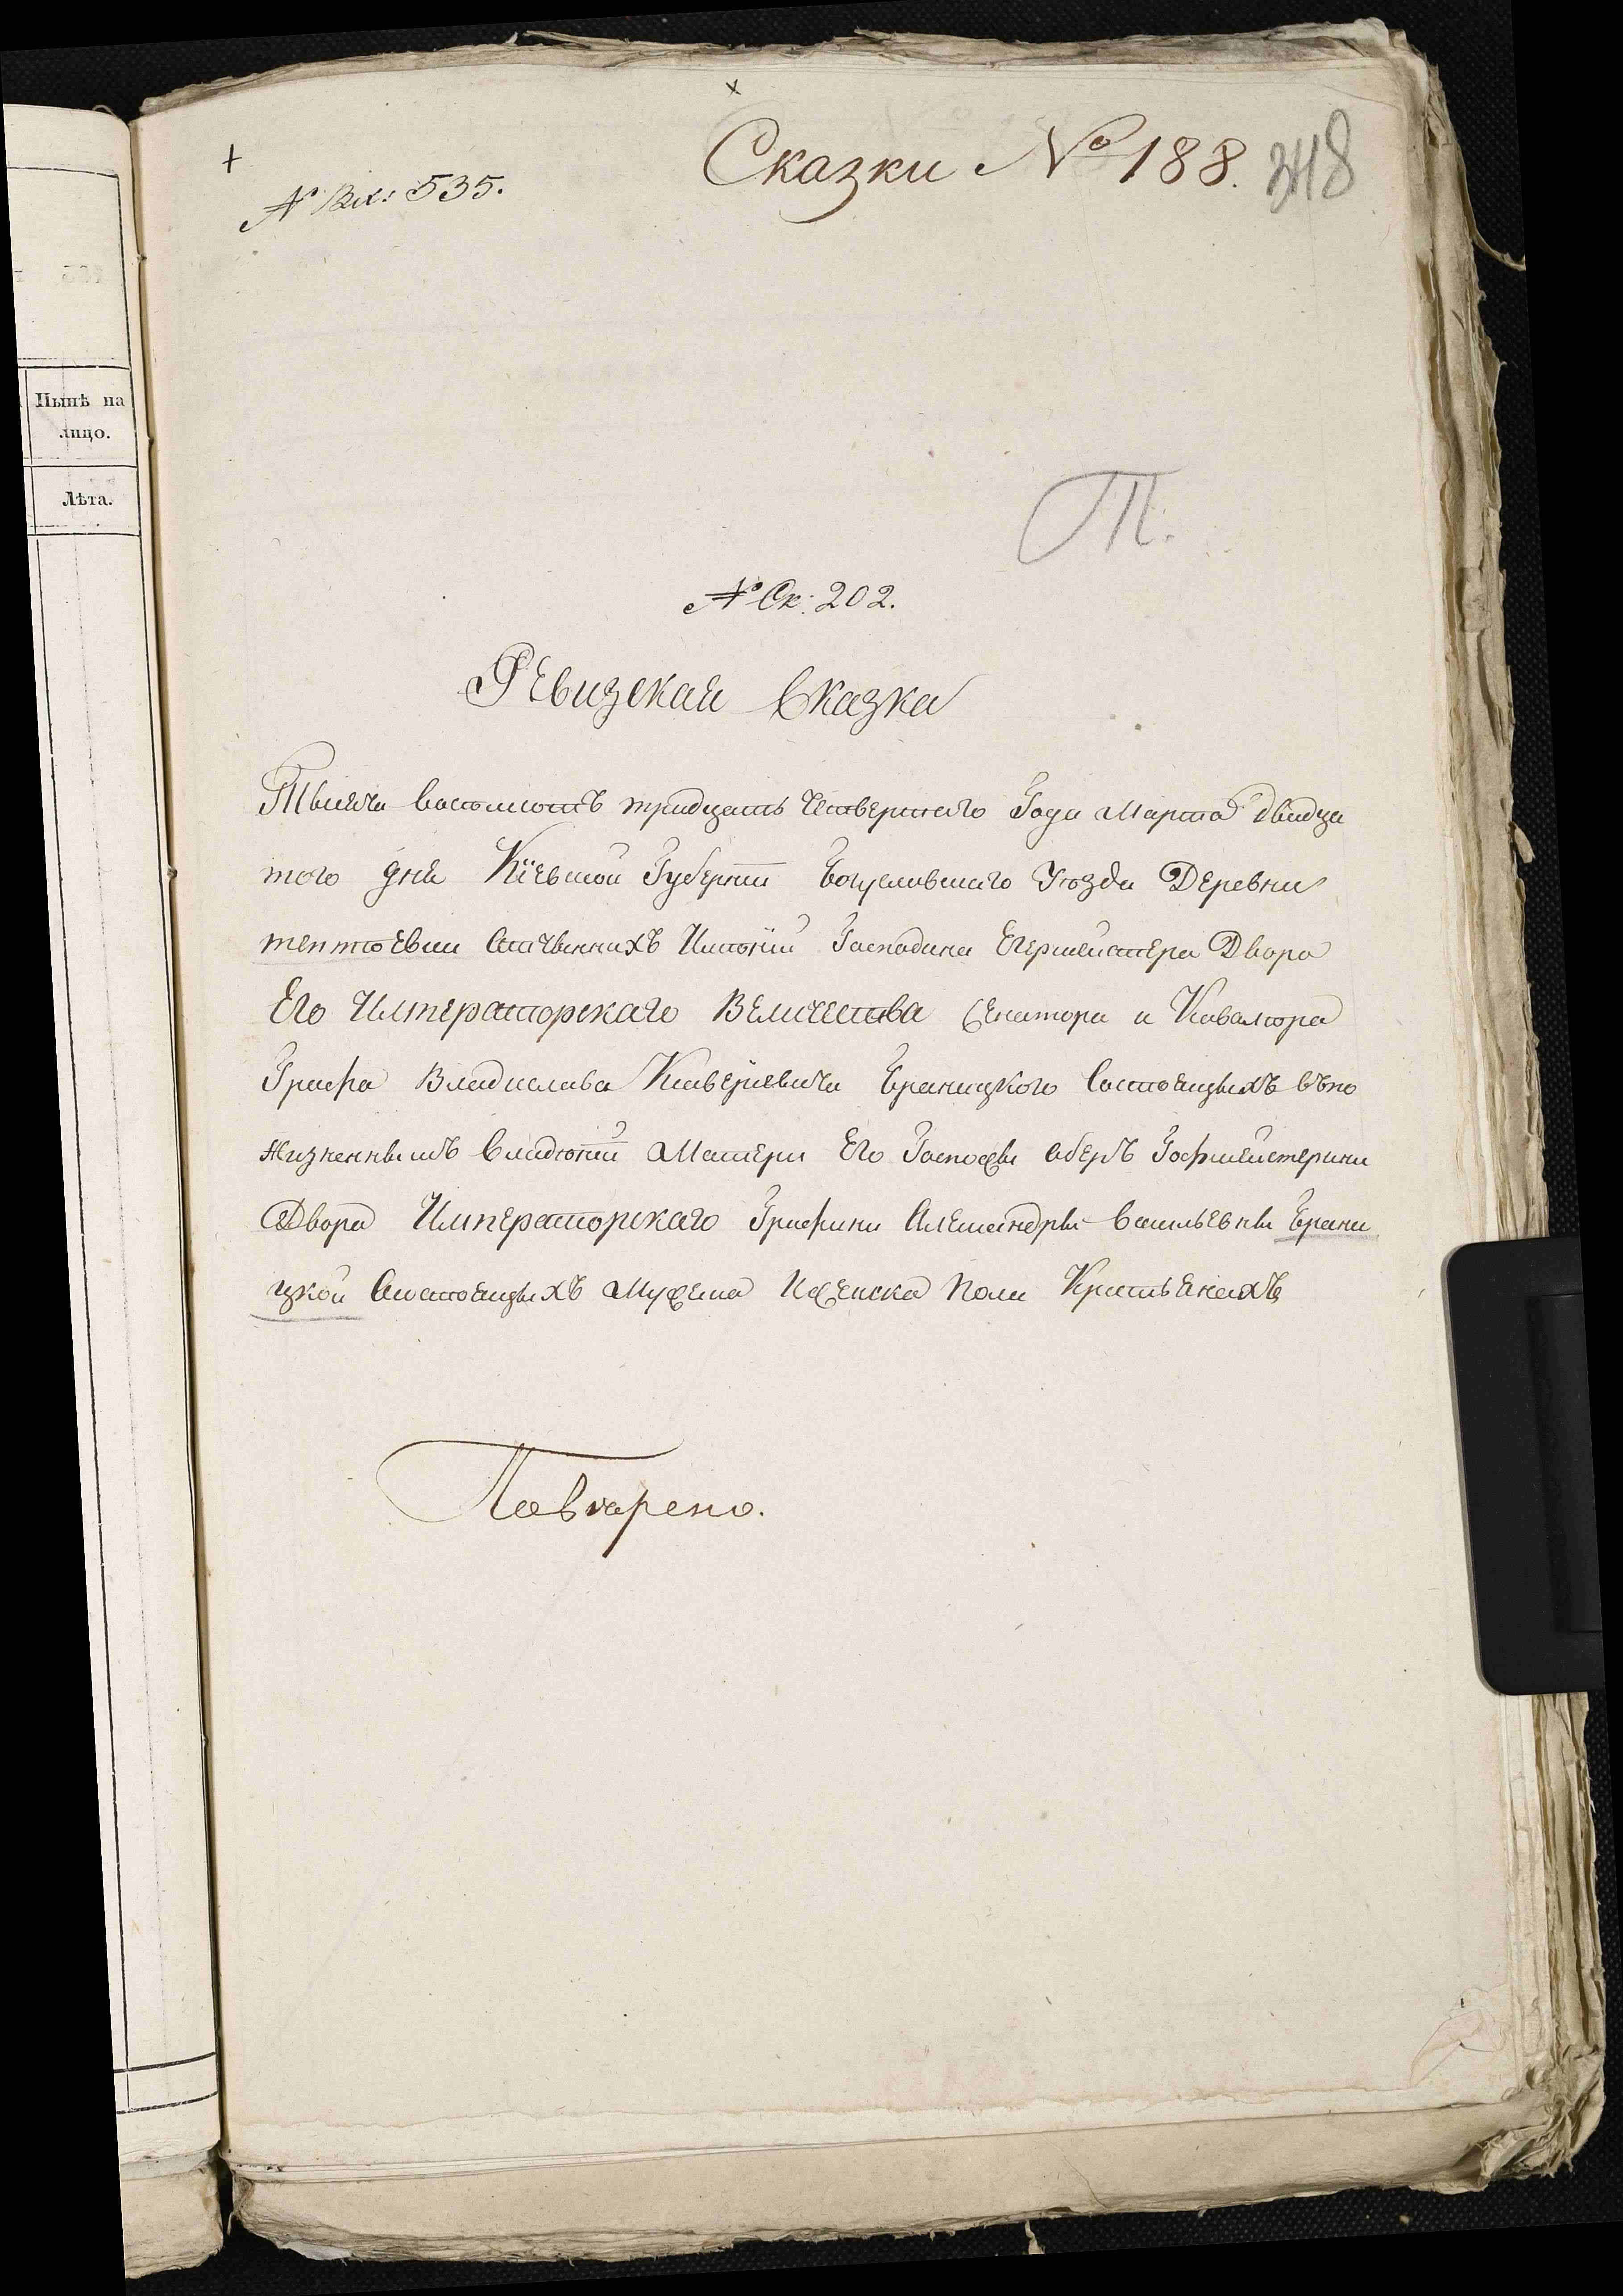 Сказки № 188. 348
№ Вх: 535.
Нынѣ на
лицо.
Лѣта.
Т.
№ Ск: 202.
Ревизская Сказка
Тысяча восомсотъ тридцать четвертаго Года Марта двадца
того дня Кіевской Губерніи Богуславскаго Уѣзда Деревни
Отичвинныхъ Имѣній Господина Егермейстера Двора
Его Императорскаго Величества Сенатора и Кавалѣра
Графа Владислава Ксаверіевича Браницкого Состоящыхъ въ по
жизненнымъ владѣніи Матери Его Госпожы оберъ Гофмейстерини
Двора Императорскаго Графини Александры васильевны Брани
цкой Осостоящыхъ Мужеска Иженска Пола Крестьянахъ
Повѣрено.